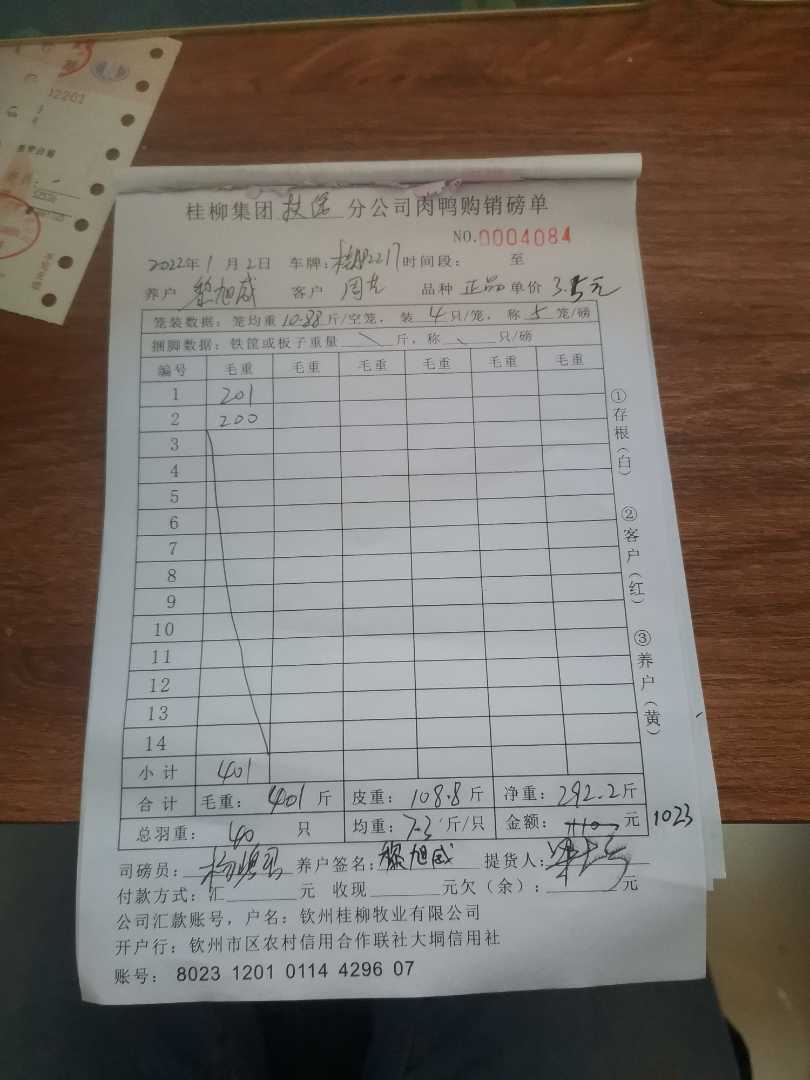 桂柳集团 扶绥 分公司肉鸭购销磅单
NO.0004084
2022年1月2日 车牌: 2217 时间段: 至
养户 黎旭威 客户 周 品种 正品 单价 3.5元
笼装数据: 笼均重 10.88 斤/空笼, 装 4 只/笼, 称 5 笼/磅
捆脚数据: 铁筐或板子重量 斤, 称 只/磅
编号 毛重 毛重 毛重 毛重 毛重 毛重
1 201
2 200
3
4
5
6
7
8
9
10
11
12
13
14
小计 401
合计 毛重: 401 斤 皮重: 108.8 斤 净重: 292.2 斤
总羽重: 40 只 均重: 7.3 斤/只 金额: 元 1023
司磅员: 养户签名: 黎旭威 提货人:
付款方式: 汇 元 收现 元欠(余): 元
公司汇款账号, 户名: 钦州桂柳牧业有限公司
开户行: 钦州市区农村信用合作联社大垌信用社
账号: 8023 1201 0114 4296 07
①存根(白)
②客户(红)
③养户(黄)
02201